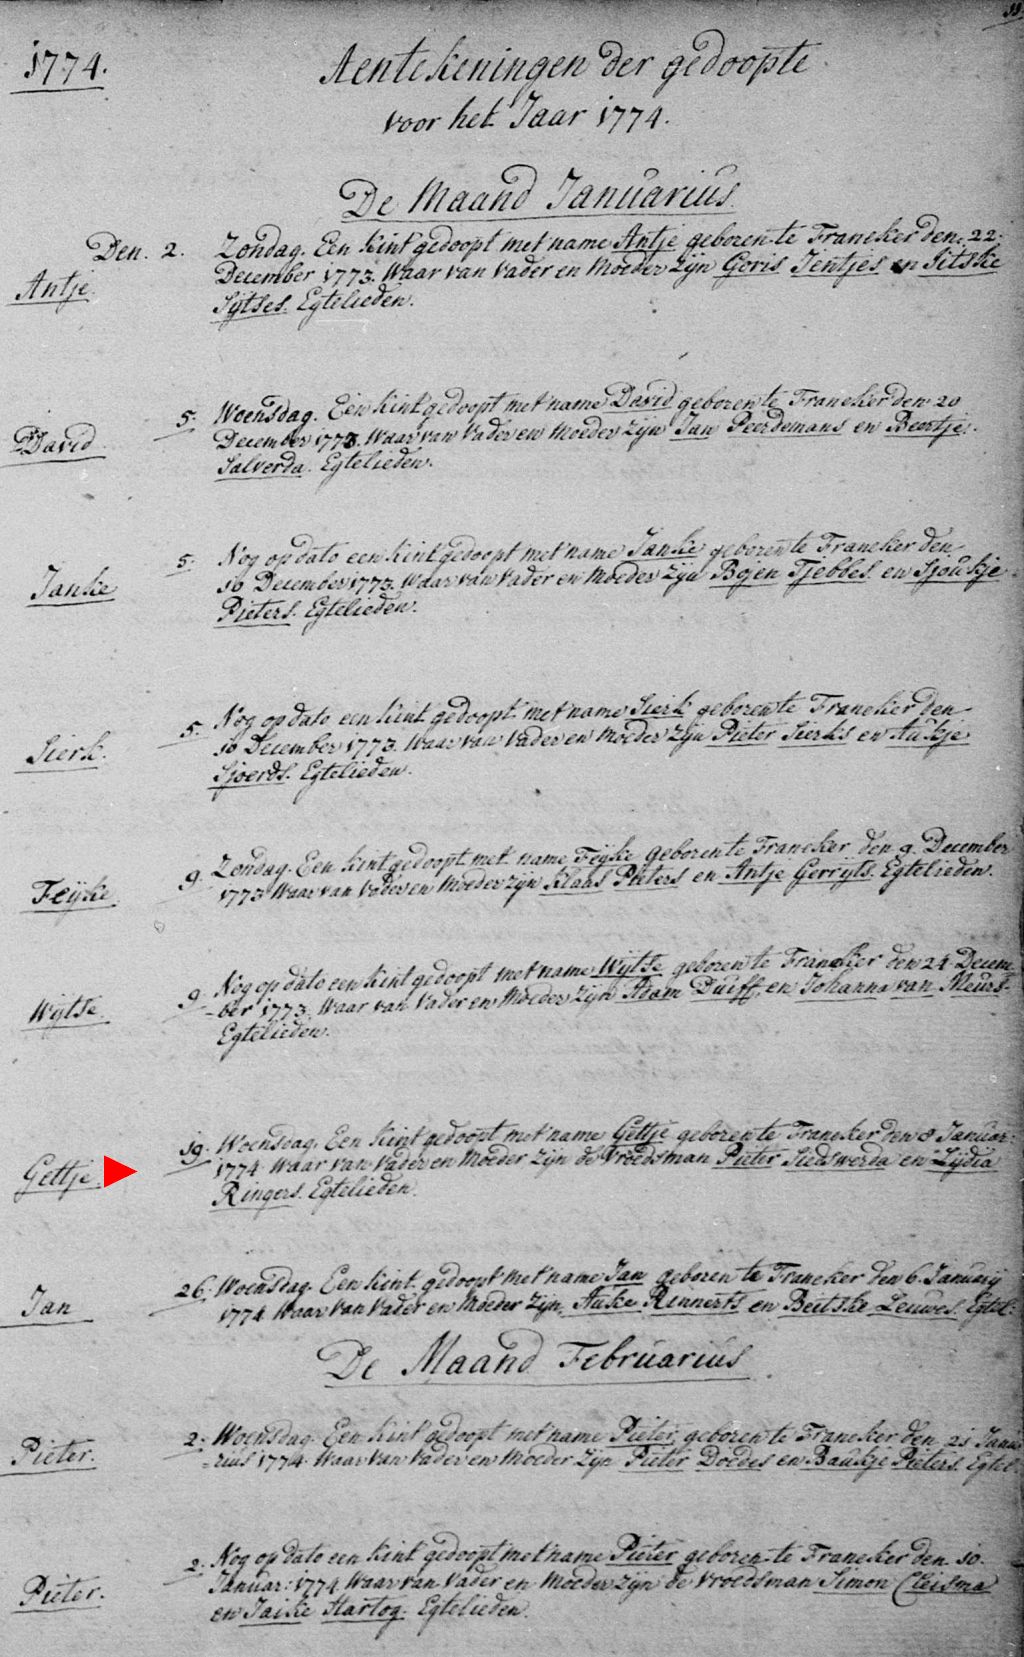 1774. Aentekeningen der gedoopte
voor het Jaar 1774.
De Maand Januarius
Den. 2. Zondag. Een kint gedoopt met name Antje geboren te Franeker den. 22.
Antje. December 1773. Waar van Vader en Moeder zijn Goris Jentjes en Sitske
Sijtses. Egtelieden.
5. Woensdag. Een kint gedoopt met name David geboren te Franeker den 20
David December 1773. Waar van Vader en Moeder zijn Jan Peerdemans en Beertje
Salverda. Egtelieden.
5. Nog op dato een kint gedoopt met name Janke geboren te Franeker den
Janke 10 December 1773. Waar van Vader en Moeder zijn Bojen Tjebbes en Sjoukje
Pieters. Egtelieden.
5. Nog op dato een kint gedoopt met name Sierk geboren te Franeker den
Sierk. 10 December 1773. Waar van Vader en Moeder zijn Pieter Sierks en Aukje
Sjoerds. Egtelieden.
9. Zondag. Een kint gedoopt met name Feijke geboren te Franeker den 9. December
Feijke 1773 Waar van Vader en Moeder zijn Klaas Pieters en Antje Gerrijts. Egtelieden.
9 Nog op dato een kint gedoopt met name Wijtse geboren te Franeker den 24 Decem-
Wijtse. -ber 1773. Waar van Vader en Moeder zijn Adam Duiff, en Johanna van Meurs-
Egtelieden.
19. Woensdag. Een kint gedoopt met name Gettje geboren te Franeker den 8 Januar:
Gettje. 1774. Waar van Vader en Moeder zijn de Vroedsman Pieter Sieswerda en Lijdia
Ringers. Egtelieden.
26. Woensdag. Een kint gedoopt met name Jan geboren te Franeker den 6. Januarij
Jan 1774. Waar van Vader en Moeder zijn. Auke Rinnerts en Beitske Leuwes. Egtel:
De Maand Februarius
2. Woensdag. Een kint gedoopt met name Pieter, geboren te Franeker den 21 Janua-
Pieter. -rius 1774. Waar van Vader en Moeder zijn Pieter Doedes en Baukje Pieters. Egtel-
2. Nog op dato een kint gedoopt met name Pieter geboren te Franeker den. 10.
Pieter. Januar: 1774 Waar van Vader en Moeder zijn de Vroedsman Simon Cleisma
en Jaike Hartog. Egtelieden.